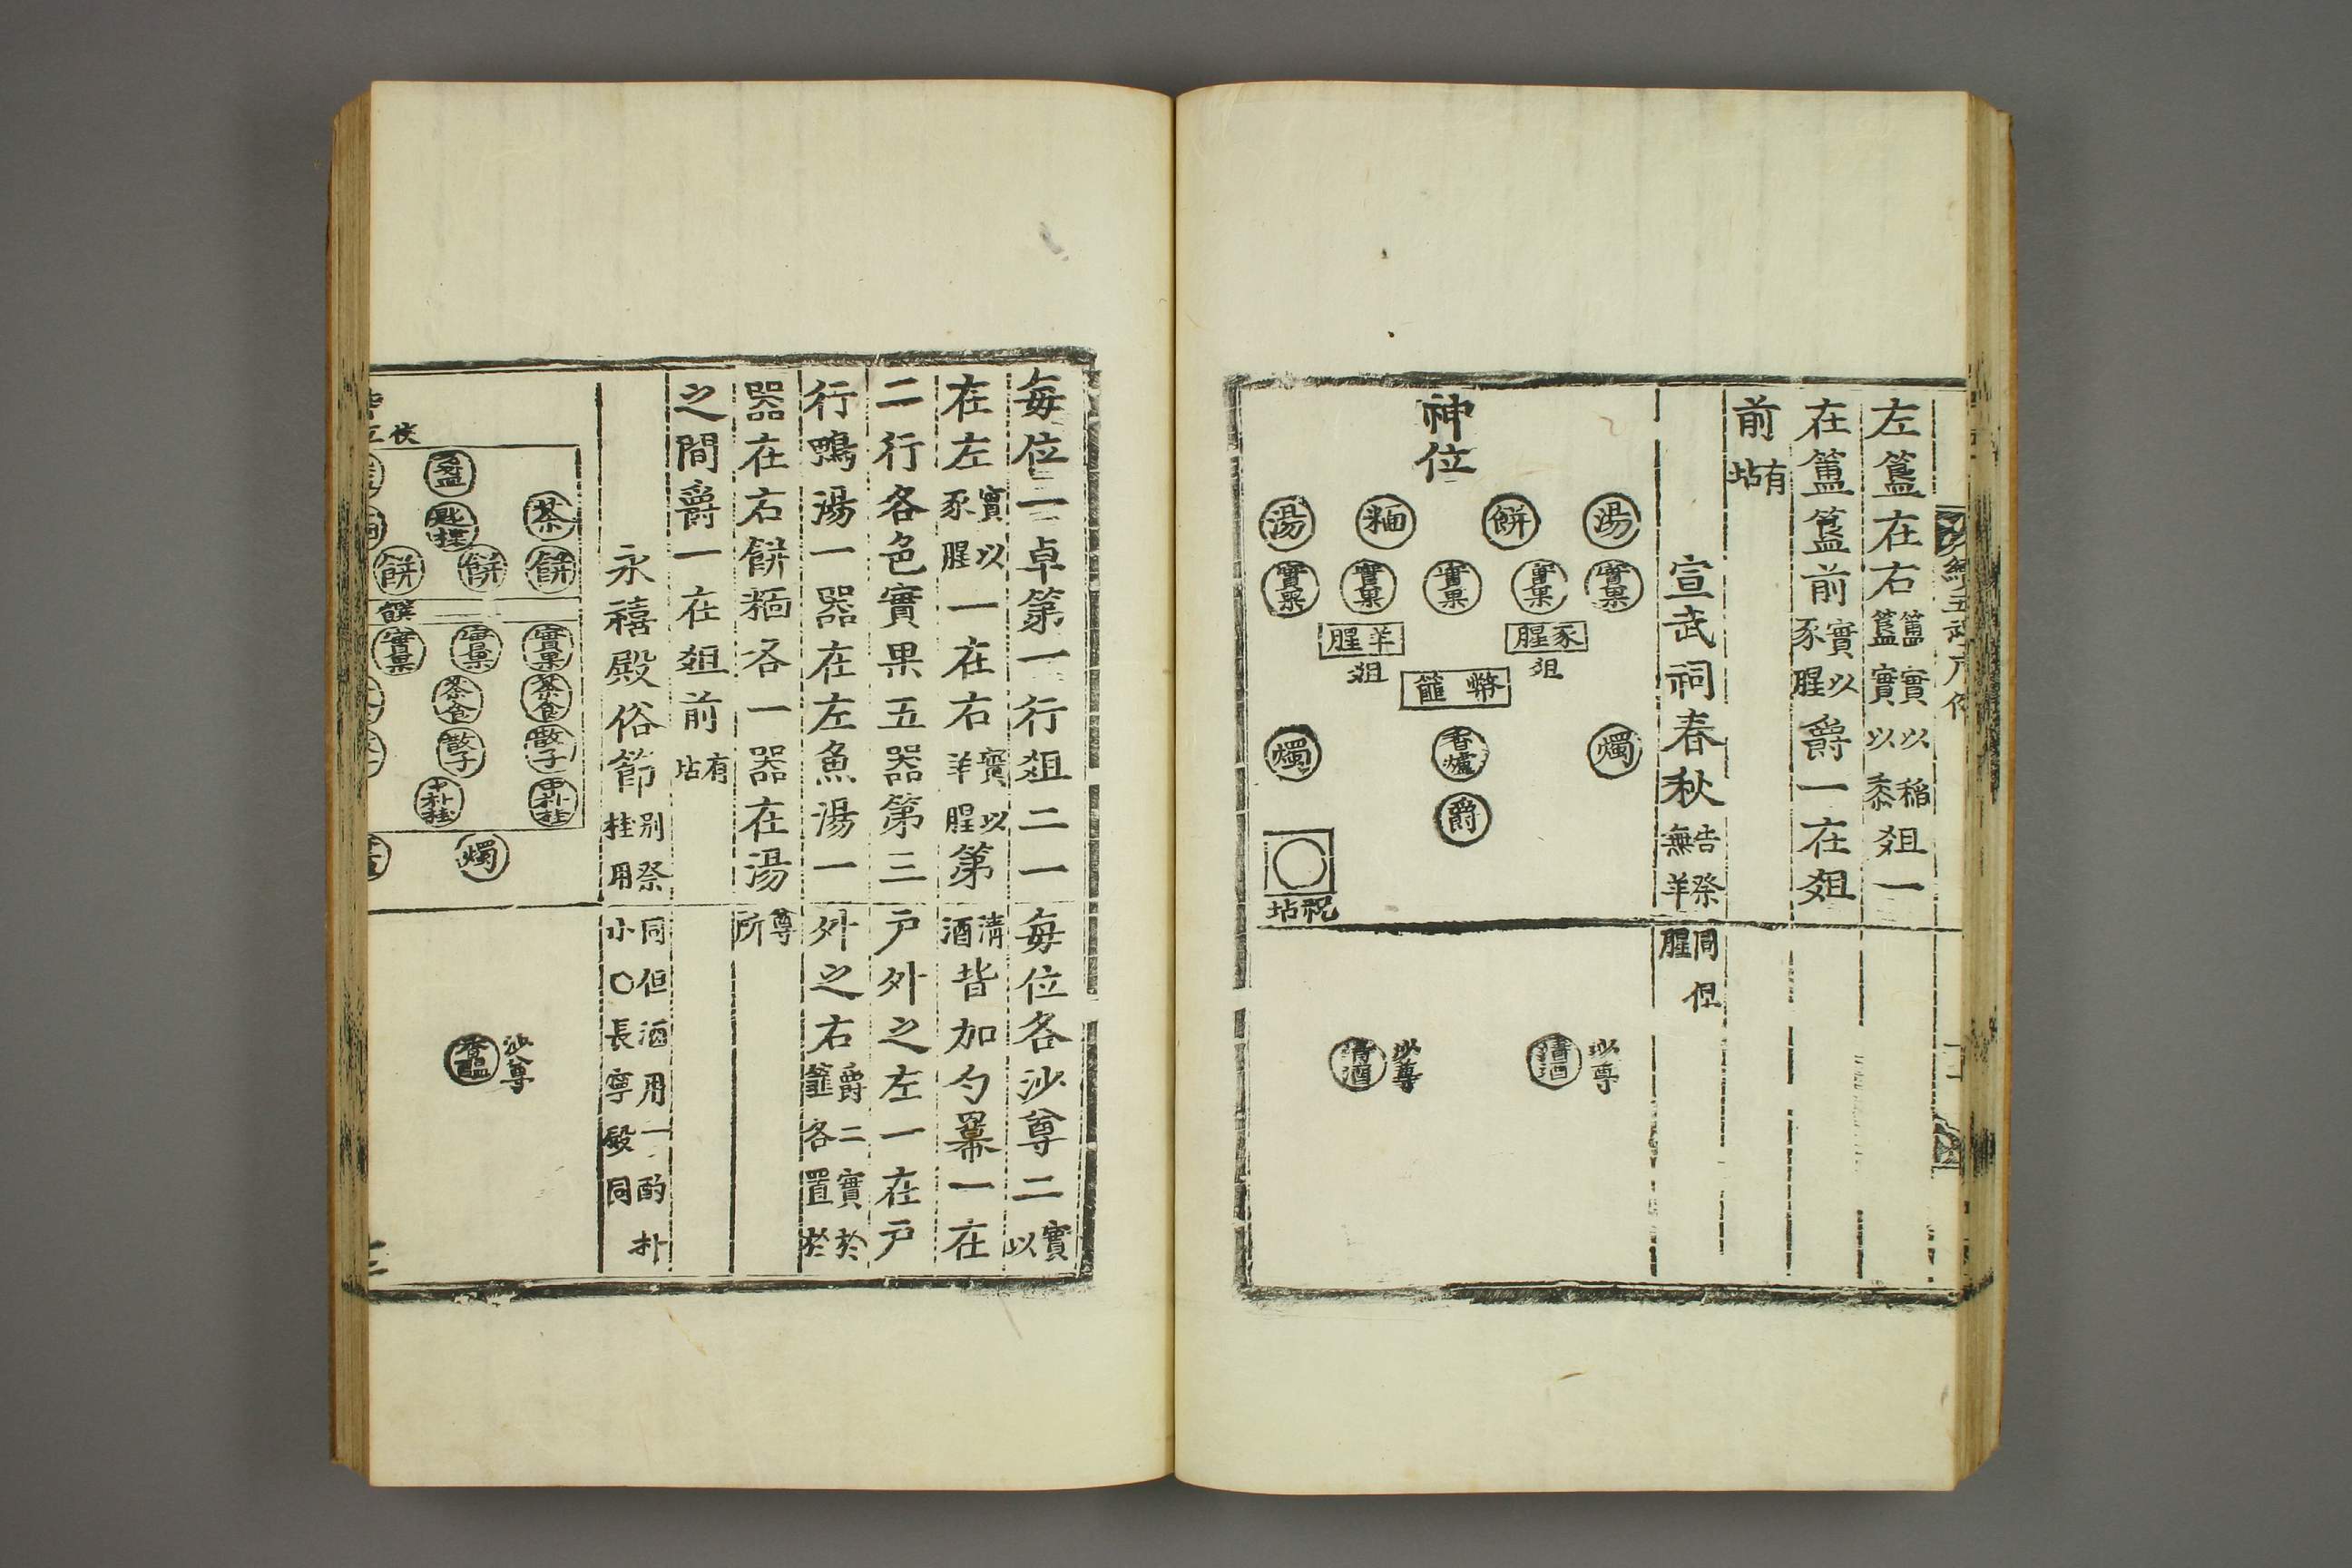 左簠在右簠簠實實以以稻黍俎一
在簠簠前實以豕腥爵一在俎
前有坫
宣武祠春秋告祭同但無羊腥
神位
湯 餠 糆 湯
實果 實果 實果 實果 實果
豕腥 羊腥
俎 俎
幣篚
燭 香爐 燭
爵
祝坫
沙尊 清酒 沙尊 清酒
每位一卓第一行俎二一
在左實以豕腥一在右實以羊腥第
二行各色實果五器第三
行鴨湯一器在左魚湯一
器在右餠糆各一器在湯
之間爵一在俎前有坫
每位各沙尊二實以
清酒皆加勺羃一在
戶外之左一在戶
外之右爵二實於篚各置於
尊所
永禧殿俗節別祭同但酒用一酌朴桂用小○長寧殿同
盞
茶 匙楪
餠 餠 餠
饌
實果 實果 實果
茶食 茶食
散子 散子
中朴桂 中朴桂
燭
沙尊 香醞